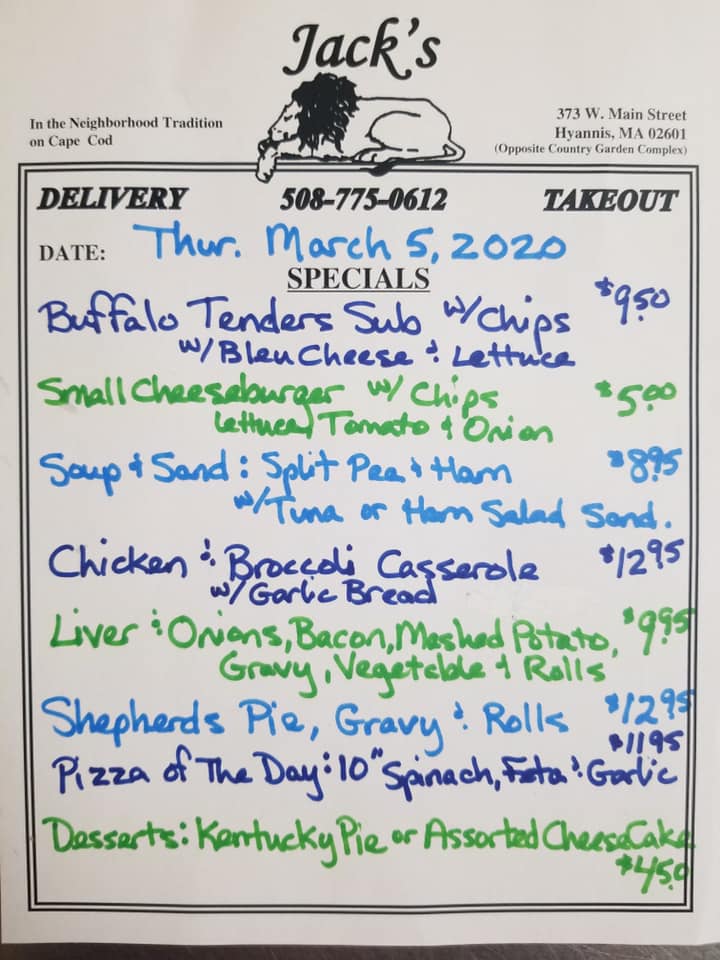 Jack's
In the Neighborhood Tradition
on Cape Cod
373 W. Main Street
Hyannis, MA 02601
(Opposite Country Garden Complex)
DELIVERY 508-775-0612 TAKEOUT
DATE: Thur. March 5, 2020
SPECIALS
Buffalo Tenders Sub w/Chips $9.50
w/Bleu Cheese & Lettuce
Small Cheeseburger w/ Chips $5.00
Lettuce, Tomato & Onion
Soup & Sand: Split Pea & Ham $8.95
w/Tuna or Ham Salad Sand.
Chicken & Broccoli Casserole $12.95
w/Garlic Bread
Liver & Onions, Bacon, Mashed Potato, $9.95
Gravy, Vegetable & Rolls
Shepherds Pie, Gravy & Rolls $12.95
$11.95
Pizza of The Day: 10" Spinach, Feta & Garlic
Desserts: Kentucky Pie or Assorted CheeseCake
$4.50